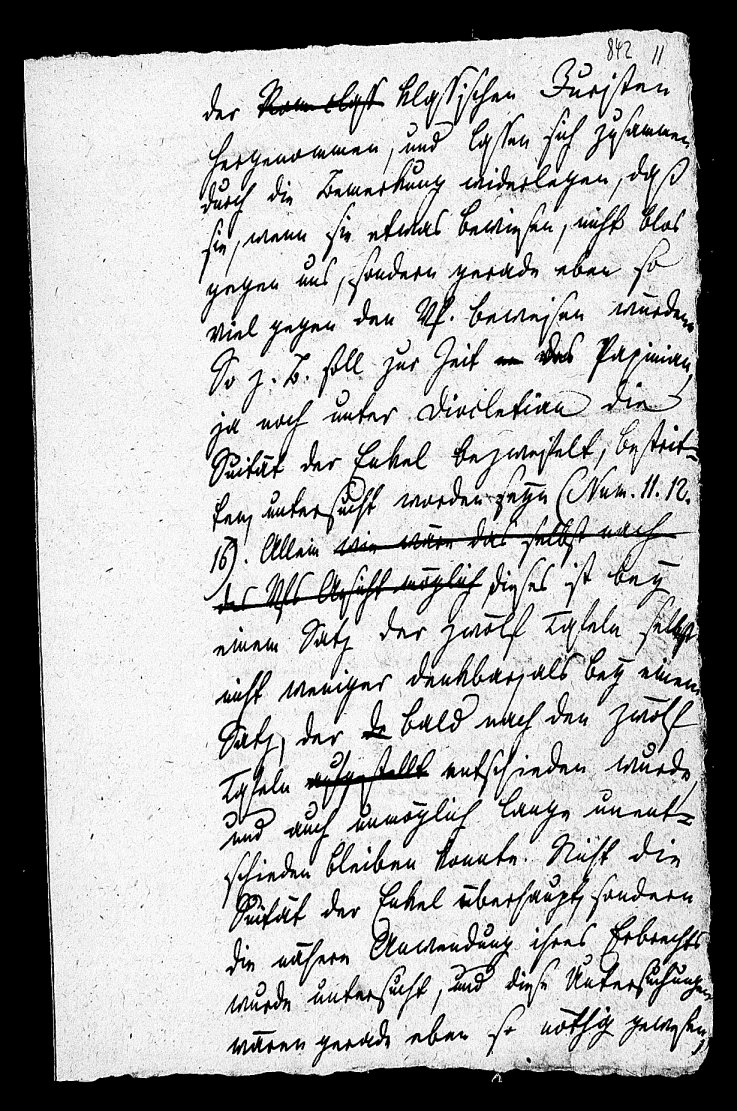 842 11
der Rom. class klassischen Juristen
hergenommen, und lassen sich zusammen
durch die Bemerkung widerlegen, daß
sie, wenn sie etwas bewiesen, nicht blos
gegen uns, sondern gerade eben so
viel gegen den Vf. beweisen würden.
So z. B. soll zur Zeit des Papinian,
ja noch unter Diocletian die
Suität der Enkel bezweifelt, bestrit-
ten, untersucht worden seyn (Num. 11. 12.
16). Allein wie wäre das selbst nach
des Vfs Ansicht möglich dieses ist bey
einem Satz der zwölf Tafeln selbst
nicht weniger denkbar, als bey einem
Satz, der bald nach den zwölf
Tafeln aufgestellt entschieden wurde,
und auch unmöglich lange unent-
schieden bleiben konnte. Nicht die
Suität der Enkel überhaupt, sondern
die nähere Anwendung ihres Erbrechts
wurde untersucht, und diese Untersuchungen
wären gerade eben so nöthig gewesen,